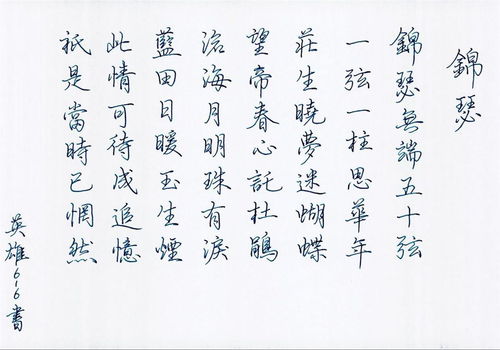 錦瑟
錦瑟無端五十弦
一弦一柱思華年
莊生曉夢迷蝴蝶
望帝春心託杜鵑
滄海月明珠有淚
藍田日暖玉生煙
此情可待成追憶
祇是當時已惘然
英雄6-6書